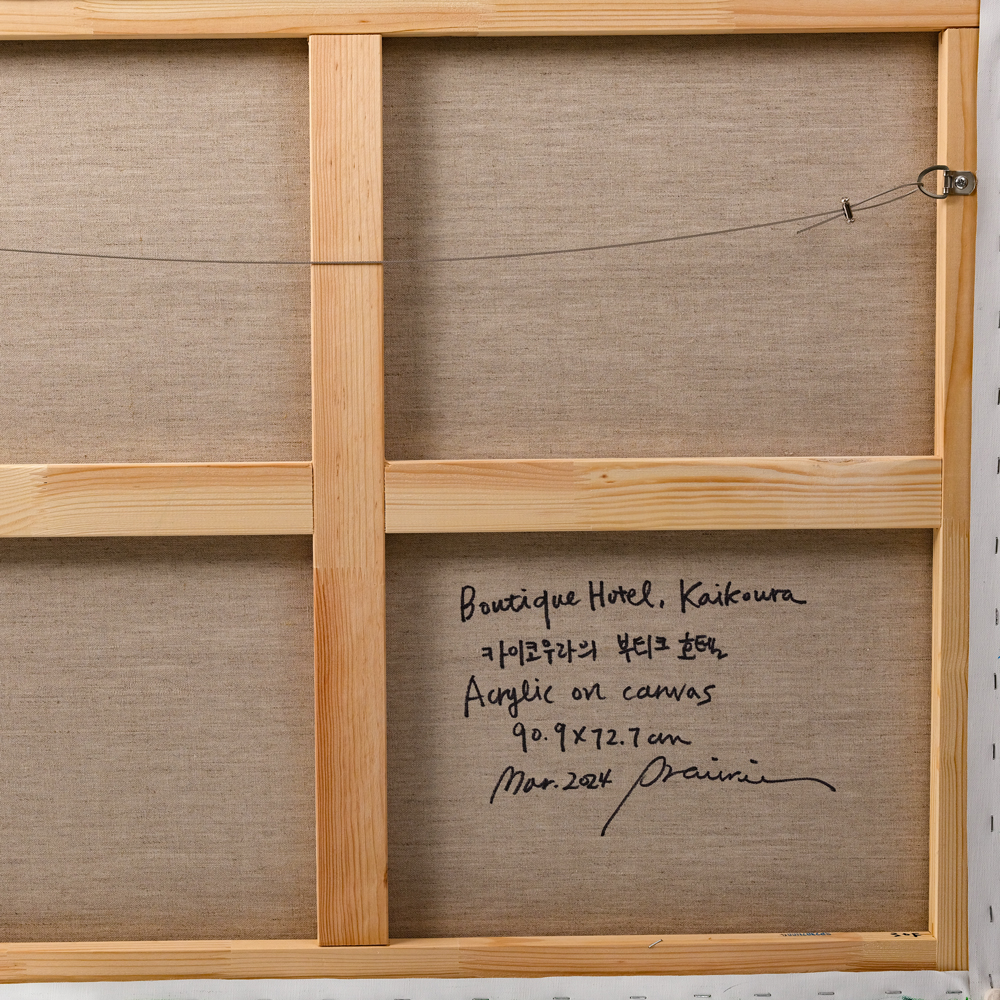 Boutique Hotel, Kaikoura
카이코우라의 부티크 호텔
Acrylic on canvas
90.9x72.7cm
Mar. 2024 Prairie